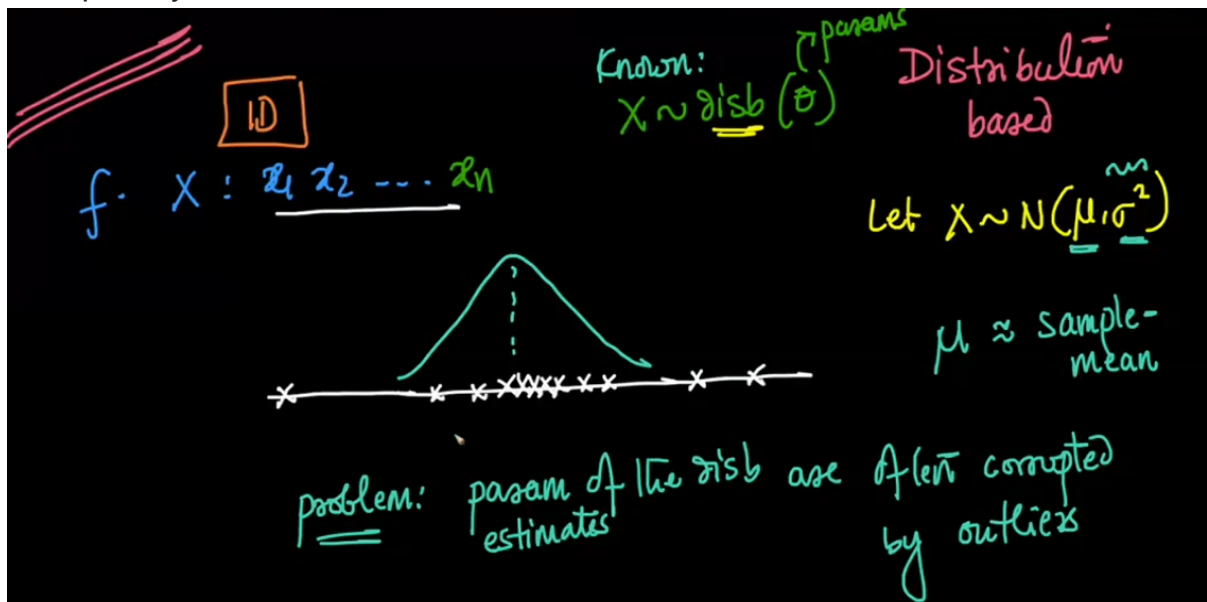 1D
f. X : x1 x2 --- xn
Known:
params
X ~ disb (θ)
Distribution
based
Let X ~ N(μ, σ²)
μ ≈ sample-
mean
problem: param of the disb are often corrupted
estimates
by outliers